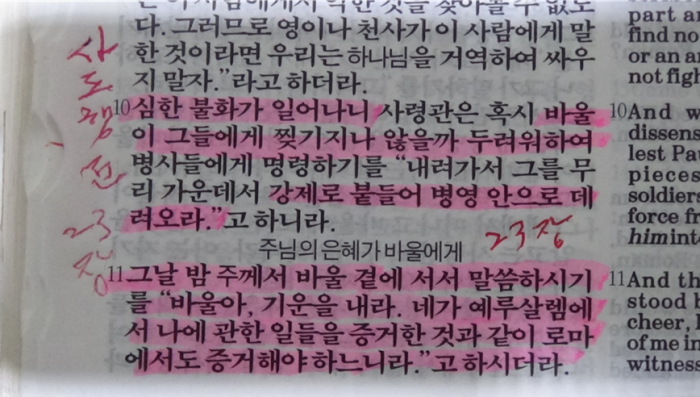 다. 그러므로 영이나 천사가 이 사람에게 말
한 것이라면 우리는 하나님을 거역하여 싸우
지 말자.”라고 하더라.
10 심한 불화가 일어나니 사령관은 혹시 바울
이 그들에게 찢기지나 않을까 두려워하여
병사들에게 명령하기를 “내려가서 그를 무
리 가운데서 강제로 붙들어 병영 안으로 데
려오라.”고 하니라.
주님의 은혜가 바울에게
11 그날 밤 주께서 바울 곁에 서서 말씀하시기
를 “바울아, 기운을 내라. 네가 예루살렘에
서 나에 관한 일들을 증거한 것과 같이 로마
에서도 증거해야 하느니라.”고 하시더라.
사
도
행
전
23
장
23장
part a
find no
or an a
not figh
10 And w
dissen
lest Pau
pieces
soldiers
force fr
him into
11 And th
stood
cheer,
of me in
witness